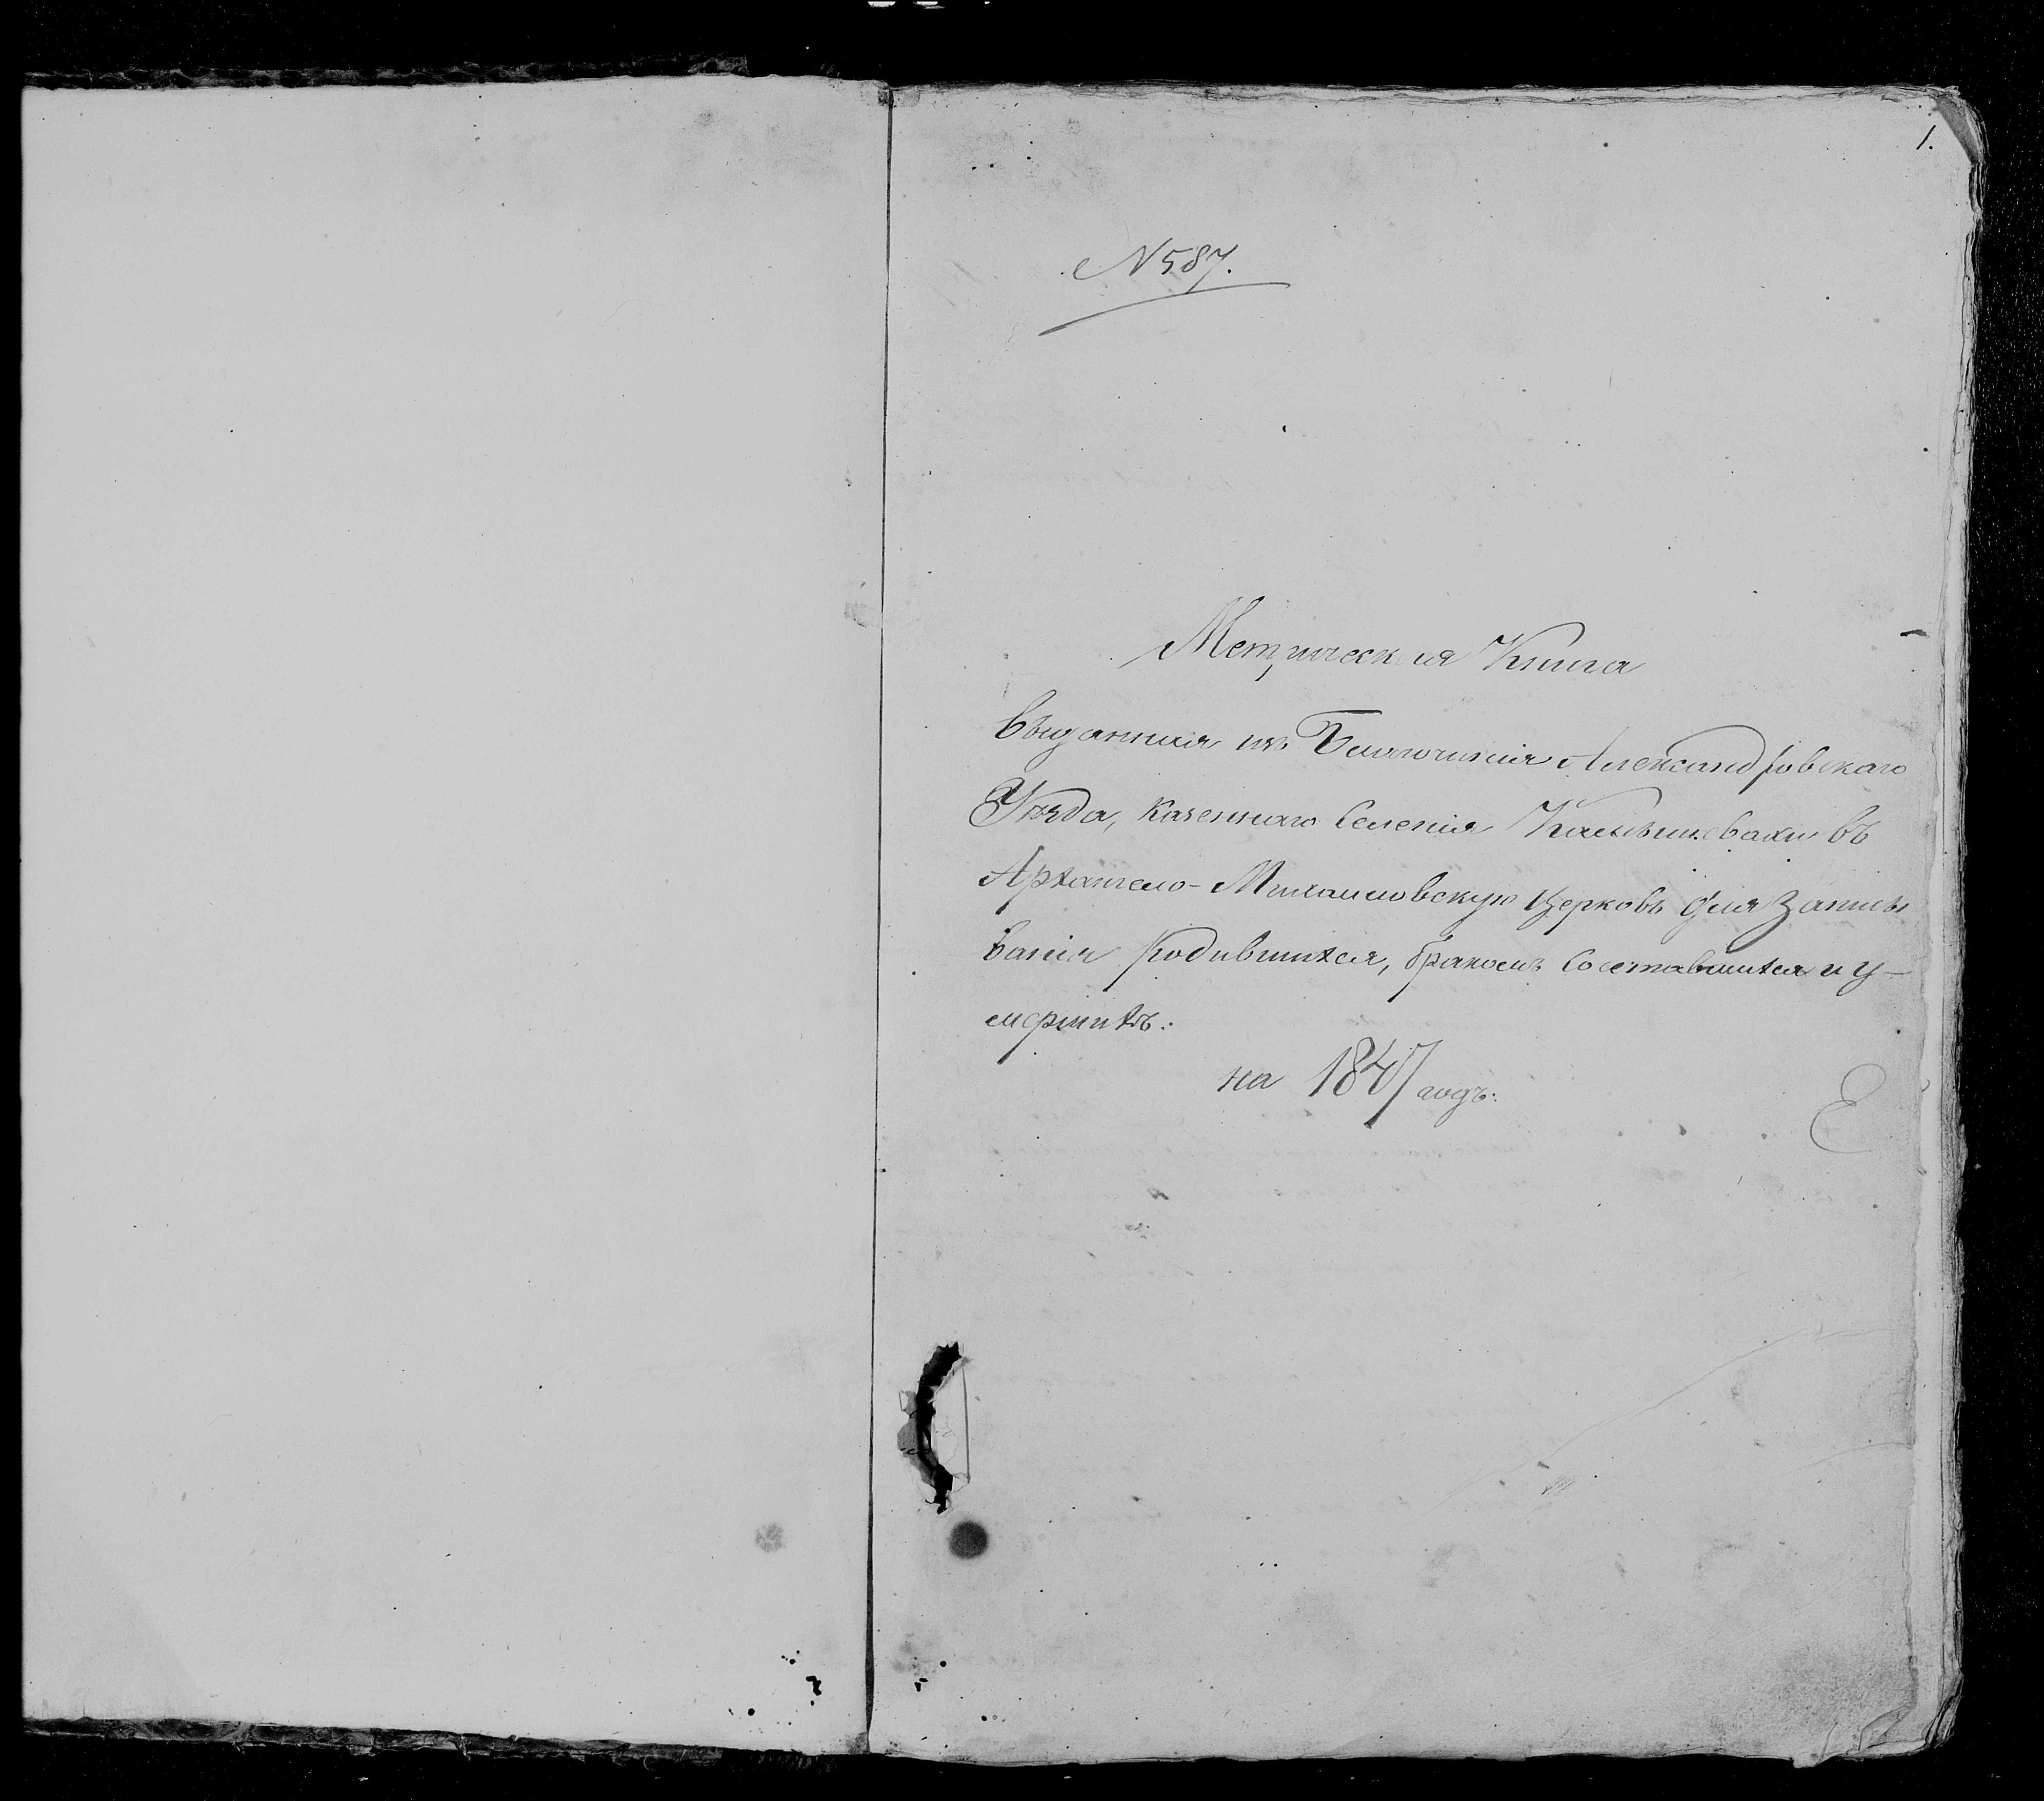 1.
N 587.
Метрическая Книга
выданная изъ Благочинія Александровскаго
Уѣзда, казеннаго Селенія Камышевахи въ
Архангело-Михаиловскую Церковь для записы
ванія родившихся, бракомъ сочетавшихся и у-
мершихъ:
на 1847 годъ: